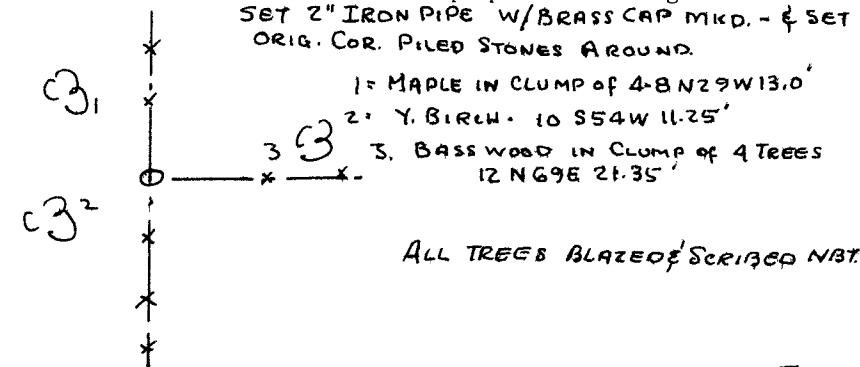 SET 2" IRON PIPE W/BRASS CAP MKD. - & SET
ORIG. COR. PILED STONES AROUND.
1= MAPLE IN CLUMP OF 4-8 N29W 13.0'
2= Y. BIRCH. 10 S54W 11.25'
3. BASSWOOD IN CLUMP OF 4 TREES
12 N69E 21.35'
1
3
2
ALL TREES BLAZED & SCRIBED NBT.